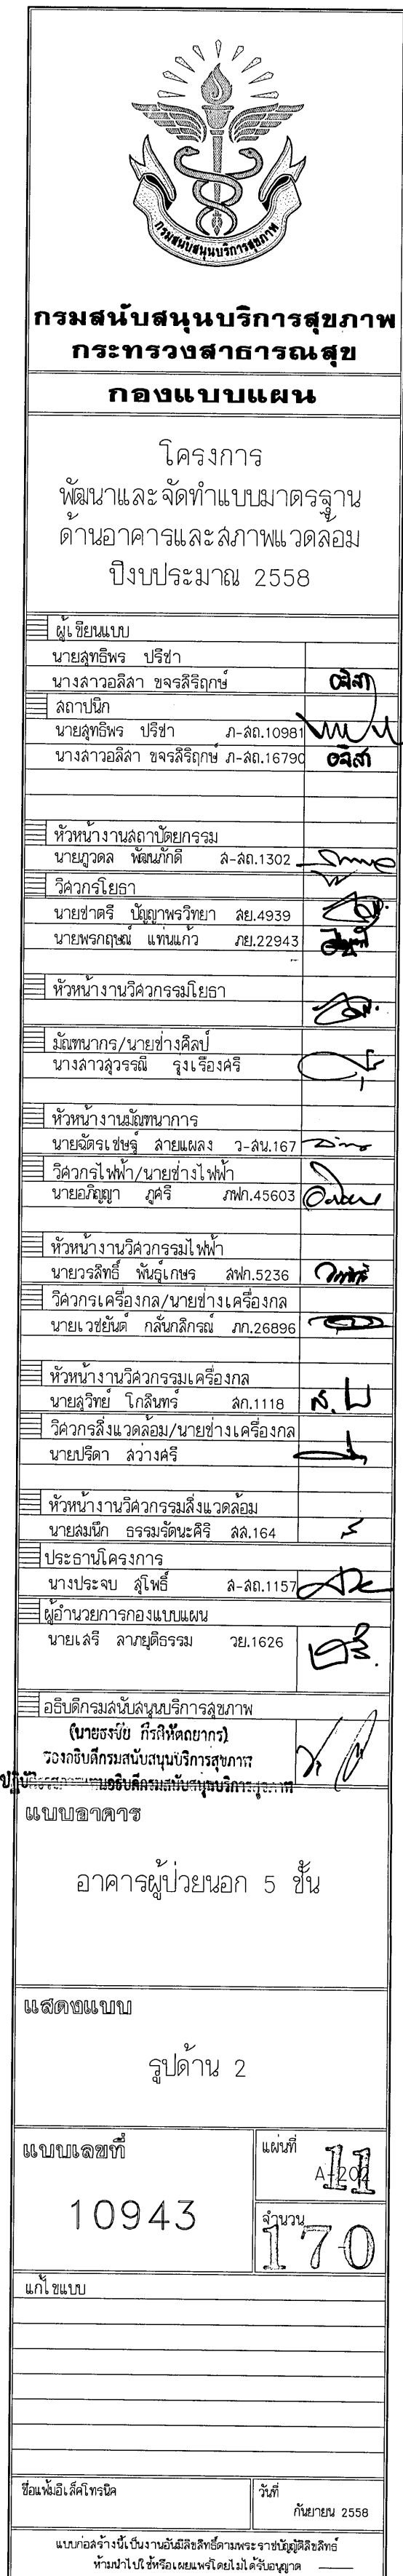 กรมสนับสนุนบริการสุขภาพ
กรมสนับสนุนบริการสุขภาพ
กระทรวงสาธารณสุข
กองแบบแผน
โครงการ
พัฒนาและจัดทำแบบมาตรฐาน
ด้านอาคารและสภาพแวดล้อม
ปีงบประมาณ 2558
ผู้เขียนแบบ
นายสุทธิพร ปรีชา
นางสาวอลิสา ขจรสิริฤกษ์
อลิสา
สถาปนิก
นายสุทธิพร ปรีชา ภ-สถ.10981
นางสาวอลิสา ขจรสิริฤกษ์ ภ-สถ.16790 อลิสา
หัวหน้างานสถาปัตยกรรม
นายภูวดล พัฒนภักดี ส-สถ.1302
วิศวกรโยธา
นายชาตรี ปัญญาพรวิทยา สย.4939
นายพรกฤษณ์ แท่นแก้ว ภย.22943
หัวหน้างานวิศวกรรมโยธา
มัณฑนากร/นายช่างศิลป์
นางสาวสุวรรณี รุ่งเรืองศรี
หัวหน้างานมัณฑนาการ
นายฉัตรเชษฐ์ สายแผลง ว-สน.167
วิศวกรไฟฟ้า/นายช่างไฟฟ้า
นายอภิญญา ภูศรี ภฟก.45603
หัวหน้างานวิศวกรรมไฟฟ้า
นายวรสิทธิ์ พันธุ์เกษร สฟก.5236
วิศวกรเครื่องกล/นายช่างเครื่องกล
นายเวชยันต์ กลั่นกลิกรณ์ ภก.26896
หัวหน้างานวิศวกรรมเครื่องกล
นายสุวิทย์ โกสินทร์ สก.1118
วิศวกรสิ่งแวดล้อม/นายช่างเครื่องกล
นายปรีดา สว่างศรี
หัวหน้างานวิศวกรรมสิ่งแวดล้อม
นายสมนึก ธรรมรัตนะศิริ สส.164
ประธานโครงการ
นางประจบ สุโพธิ์ ส-สถ.1157
ผู้อำนวยการกองแบบแผน
นายเสรี ลาภยุติธรรม วย.1626
อธิบดีกรมสนับสนุนบริการสุขภาพ
(นายธงชัย กีรติหัตถยากร)
รองอธิบดีกรมสนับสนุนบริการสุขภาพ
ปฏิบัติราชการแทนอธิบดีกรมสนับสนุนบริการสุขภาพ
แบบอาคาร
อาคารผู้ป่วยนอก 5 ชั้น
แสดงแบบ
รูปด้าน 2
แบบเลขที่
10943
แผ่นที่
A-202
11
จำนวน
170
แก้ไขแบบ
ชื่อแฟ้มอิเล็คโทรนิค
วันที่
กันยายน 2558
แบบก่อสร้างนี้เป็นงานอันมีลิขสิทธิ์ตามพระราชบัญญัติลิขสิทธิ์
ห้ามนำไปใช้หรือเผยแพร่โดยไม่ได้รับอนุญาต